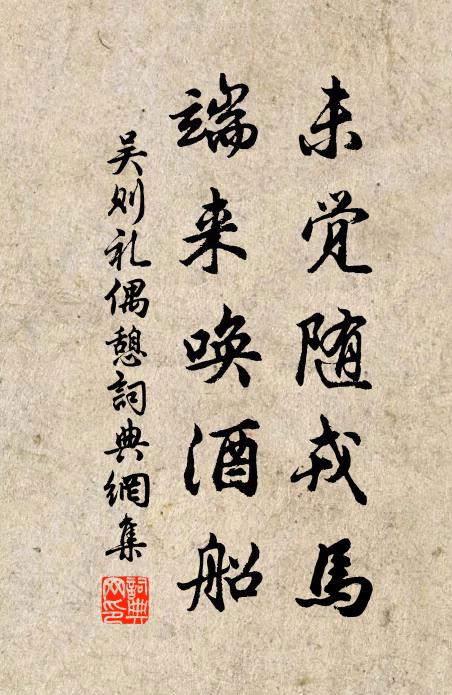 未觉随戎马
端来唤酒船
吴则礼偶憩詞典網集
詞典网印